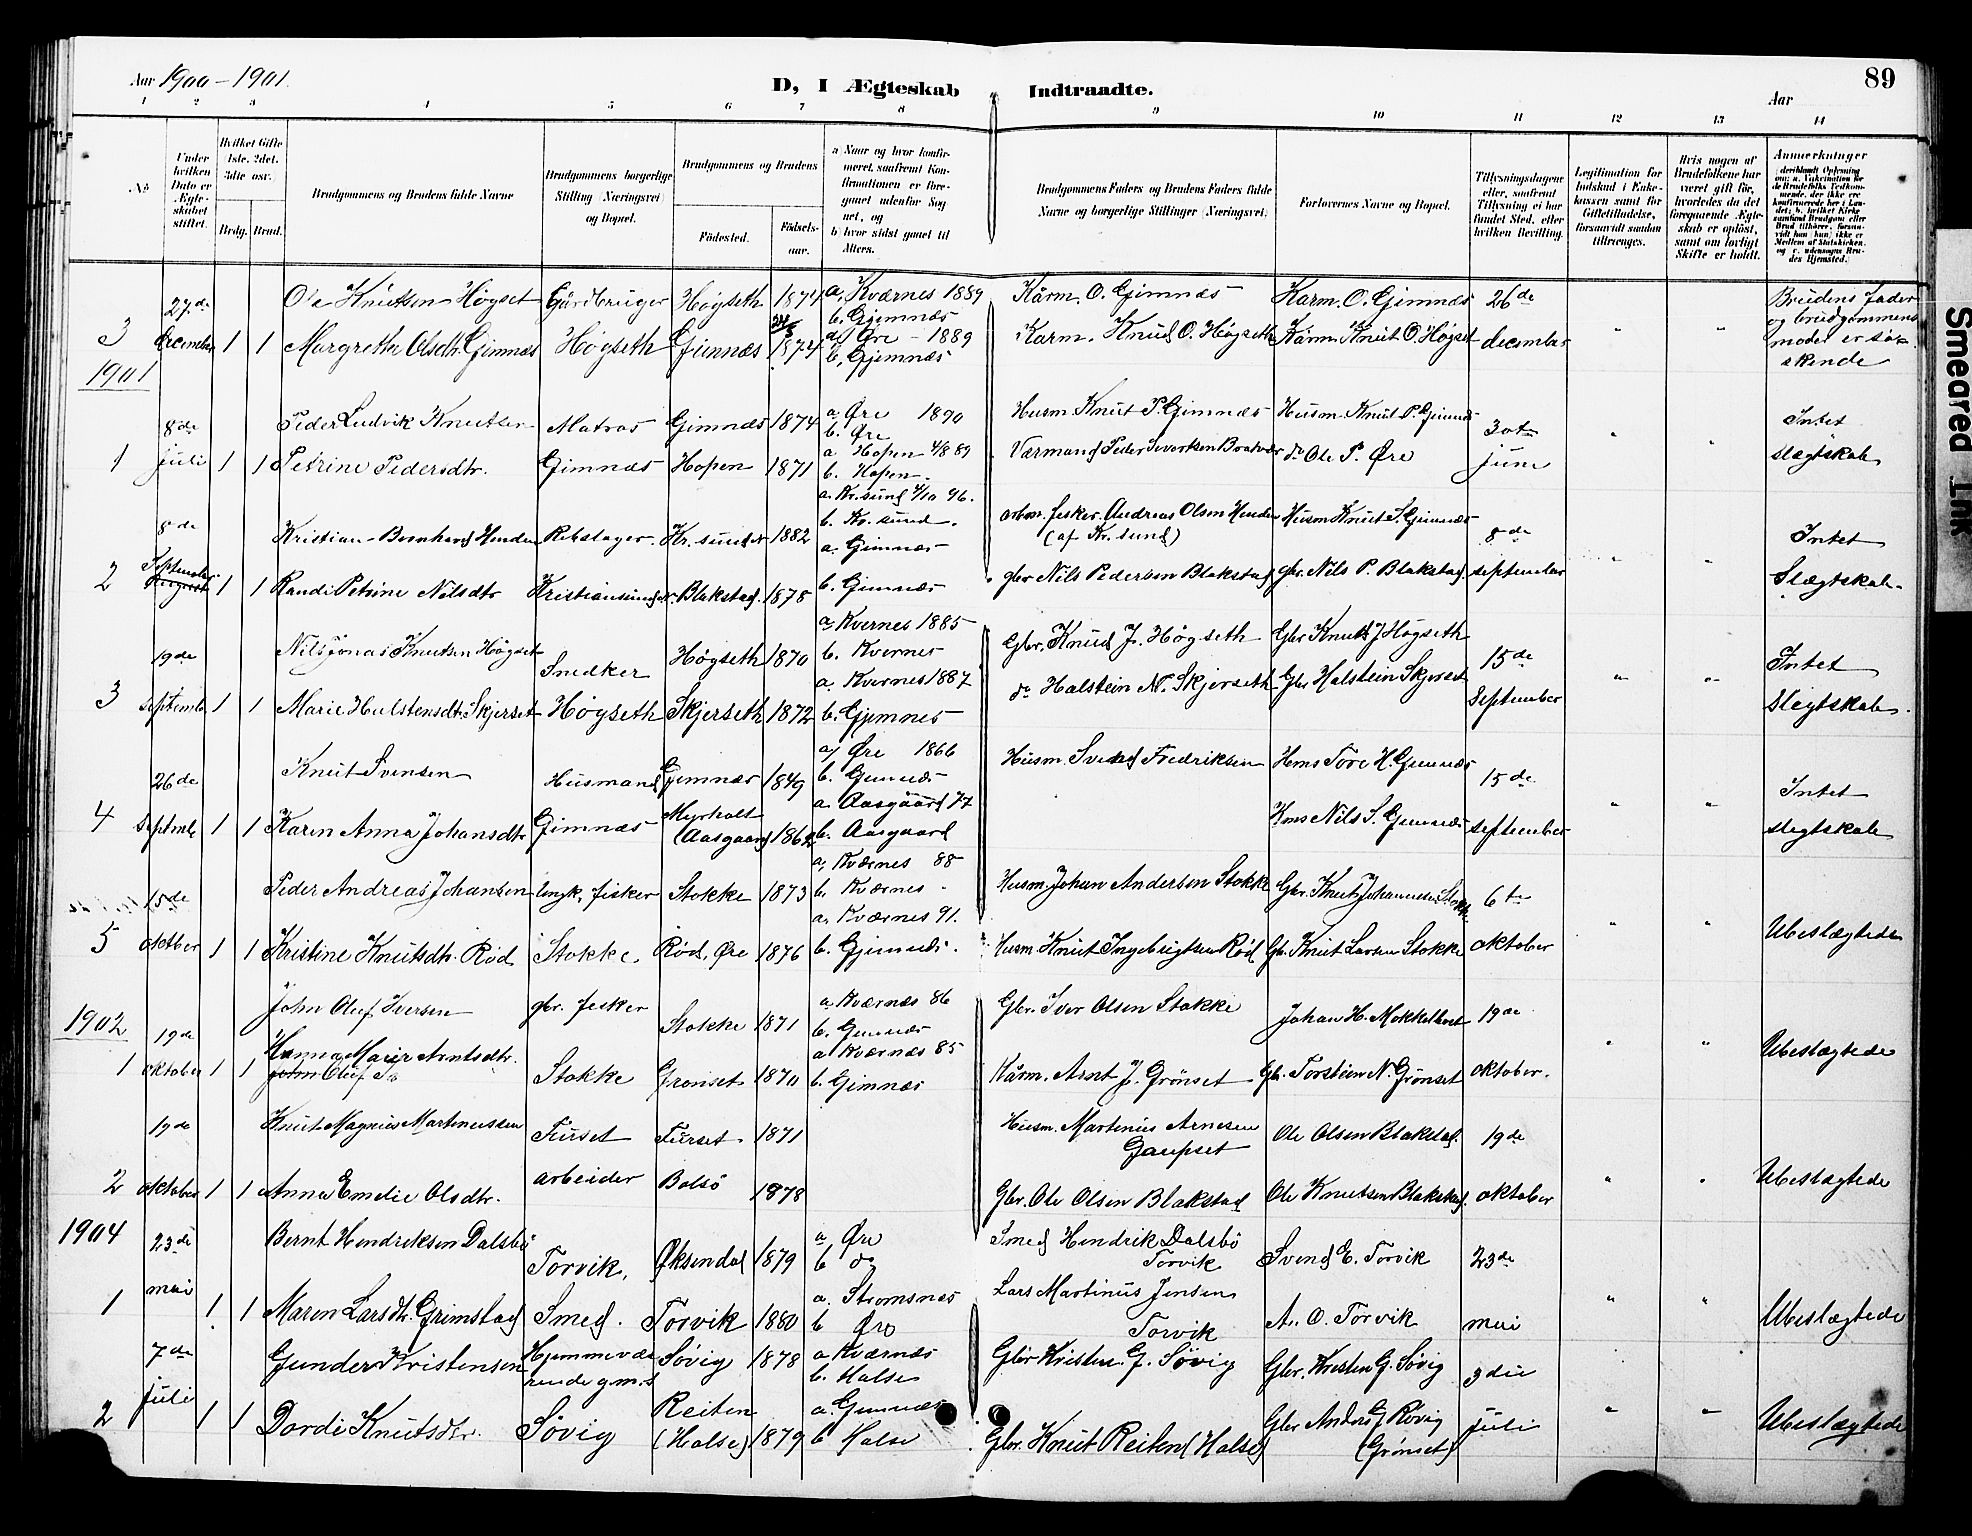 Aar 1900 - 1901.
D, I Ægteskab Indtraadte.
Aar
89
1 2 3 4 5 6 7 8 9 10 11 12 13 14
No
Under hvilken Dato er Ægteskabet stiftet.
Hvilket Gifte 1ste, 2det, 3die osv.
Brdg. Brud.
Brudgommens og Brudens fulde Navne
Brudgommens borgerlige Stilling (Næringsvei) og Bopæl.
Brudgommens og Brudens
Fødested.
Fødselsaar.
a Naar og hvor konfirmeret, saafremt Konfirmationen er foregaaet udenfor Sognet, og
b) hvor sidst gaaet til Alters.
Brudgommens Faders og Brudens Faders fulde Navne og borgerlige Stillinger (Næringsvei)
Forlovernes Navne og Bopæl.
Tillysningsdagene eller, saafremt Tillysning ei har fundet Sted, efter hvilken Bevilling.
Legitimation for Indskud i Enkekassen samt for Giftetilladelse, forsaavidt saadan tiltrænges.
Hvis nogen af Brudefolkene har været gift før, hvorledes da det foregaaende Ægteskab er opløst, samt om lovligt Skifte er holdt.
Anmerkninger
3 27de december 1 1
Ole Knutsen Høgset Gårdbruger Høgseth 1874 a, Kværnes 1889 b. Gjemnæs Kårm. O. Gimnæs Karm. O. Gimnæs 26de
Margrethe Olsdtr. Gimnæs Høgseth Gimnæs 1874 a, Øre - 1889 b, Gjemnæs Karm. Knud O. Høgseth Kårm. Knut O. Høgset december
Brudens fader og brudgommens moder er søskende
1901
1 8de juli 1 1
Peder Ludvik Knutsen Matros Gimnæs 1874 a Øre 1890 b. Øre Husm. Knut P. Gimnæs Husm. Knut P. Gimnæs 30te
Petrine Pedersdtr. Gimnæs Hopen 1871 a Hopen 4/8 89 b. Hopen Peder Iverksen do Ole P. Øre juni
Intet slægtskab
2 8de September 1 1
Kristian Bernhard Rebslager. Kr. sund N 1882 a. Kr. sund 4/10 96. b. Kr. sund. fisker Andreas Olsen (af Kr. sund) Husm Knut S. Gimnæs 8de
Randi Petrine Nilsdtr Kristiansund N. Blakstad. 1878 a. Gimnæs b. Gimnæs gbr Nils Pedersen Blakstad gbr. Nils P. Blakstad. september
Intet Slægtskab.
3 19de septemb 1 1
Nils Jonas Knutsen Høgset Snedker Høgseth 1870 a. Kvernes 1885 b. Kvernes Gbr. Knud J. Høgseth Gbr Knut J Høgseth 15de
Marie Halstensdtr. Skjerset Høgseth Skjerseth 1872 a. Kvernes 1887 b. Gjemnes do Halstein N. Skjerseth Gbr Halstein Skjerset September
Intet Slegtskab.
4 26de Septmb 1 1
Knut Svensen Husmand Gjemnæs 1849 a, Øre 1866 b. Gimnæs Husm. Svend Fredriksen Hms Tore H. Gimnæs 15de
Karen Anna Johansdtr Gimnæs Myrholt (Aasgaard) 1862 a. Aasgaard 77 b. Aasgaard Hms Nils S. Gimnæs september
Intet slegtskab
5 15de oktober 1 1
Peder Andreas Johansen fisker Stokke 1873 a, Kværnes 88 b. Kværnes Husm. Johan Andersen Stokke Gbr. Knut Johannesen Stokke 6te
Kristine Knutsdtr. Rød Stokke. Rød, Øre 1876 a. Kværnes 91. b. Gjimnæs. Husm. Knut Ingebrigtsen Rød Gb. Knut Larsen Stokke oktober
Ubeslægtede
1902
1 19de oktober 1 1
John Oluf Iversen gbr. fisker Stokke 1871 a Kværnæs 86 b. Gimnæs Gbr. Iver Olsen Stokke Johan H. 19de
Hanna Arntsdtr. Stokke Grønset 1870 a Kværnæs 85 b. Gimnæs Kårm. Arnt J. Grønset Gb. Torstein N. Grønset oktober.
Ubeslægtede
2 19de oktober 1 1
Knut Magnus Martinussen Furset Furset 1871 Husm. Martinus Arnesen Gaupset Ole Olsen Blakstad. 19de
Anna Emelie Olsdtr. arbeider Bolsø 1878 Gbr. Ole Olsen Blakstad Ole Knutsen Blakstad. oktober
Ubeslægtede
1904
1 23de mai 1 1
Bernt Hendriksen Dalsbø Torvik, Øksendal 1879 a Øre b do Smed Hendrik Dalsbø Torvik Svend E. Torvik 23de
Maren Larsdtr. Grimstad Smed. Torvik 1880 a. Stromsnæs b Øre Lars Martinus Jensen Torvik A. O. Torvik mai
Ubeslægtede
2 7de juli 1 1
Gunder Kristensen Hjemmeværende gm.s Søvig 1878 a Kværnæs b. Halse Gbr Kristen G. Søvig Gbr. Kristen G. Søvig 3die
Dordi Knutsdtr. Søvig Reiten (Halse) 1879 a. Gimnæs b Halse Gbr. Knut Reiten (Halse) Gbr Anders J Røvig (Grønset) juli
Ubeslægtede
Smeared Ink